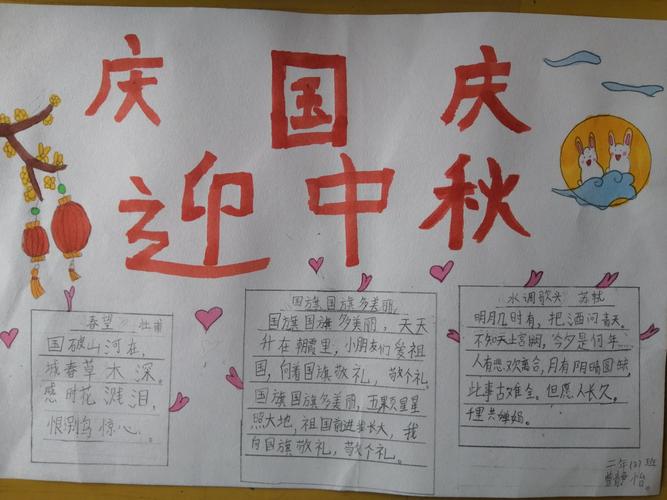 庆 国 庆
迎中秋
春望 杜甫
国破山河在,
城春草木深。
感时花溅泪,
恨别鸟惊心。
国旗国旗多美丽
国旗国旗多美丽,天天
升在朝霞里,小朋友们爱祖
国,向着国旗敬礼,敬个礼。
国旗国旗多美丽,五颗星星
照大地,祖国前进我长大,我
向国旗敬礼,敬个礼。
水调歌头 苏轼
明月几时有,把酒问青天。
不知天上宫阙,今夕是何年…
人有悲欢离合,月有阴晴圆缺,
此事古难全。但愿人长久。
千里共婵娟。
二年(3)班
静怡。